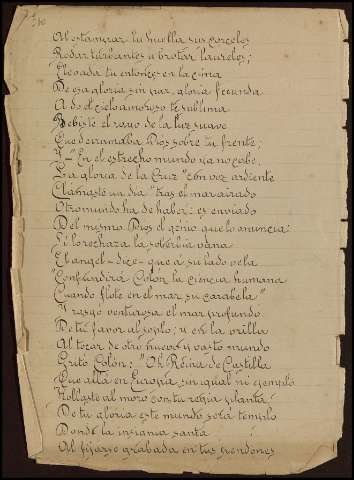 Al estampar tu huella sus corceles
Rodar turbantes y brotar laureles;
Elevada tu entonces en la cima
De esa gloria sin par, gloria fecunda
A do el cielo amoroso te sublima
Bebiste el rayo de la luz suave
Que derramaba Dios sobre tu frente;
Y "En el estrecho mundo ya no cabe,
La gloria de la Cruz" con voz ardiente
Clamaste un dia "tras el mar airado
Otro mundo ha de haber: es enviado
Del mismo Dios el génio que lo anuncia:
Si lo rechaza la soberbia vana
El angel - dize - que á su lado vela
"Confundirá Colón la ciencia humana
Cuando flote en el mar su carabela"
Y rasgo venturosa el mar profundo
De tu favor al soplo; y en la orilla
Al tocar de otro nuevo y vasto mundo
Grito Colón: "Oh Reina de Castilla
Que allá en Europa sin igual ni ejemplo
Hollaste al moro con tu regia planta:
De tu gloria este mundo será templo
Donde la insignia santa
Al fijarse grabada en tus pendones